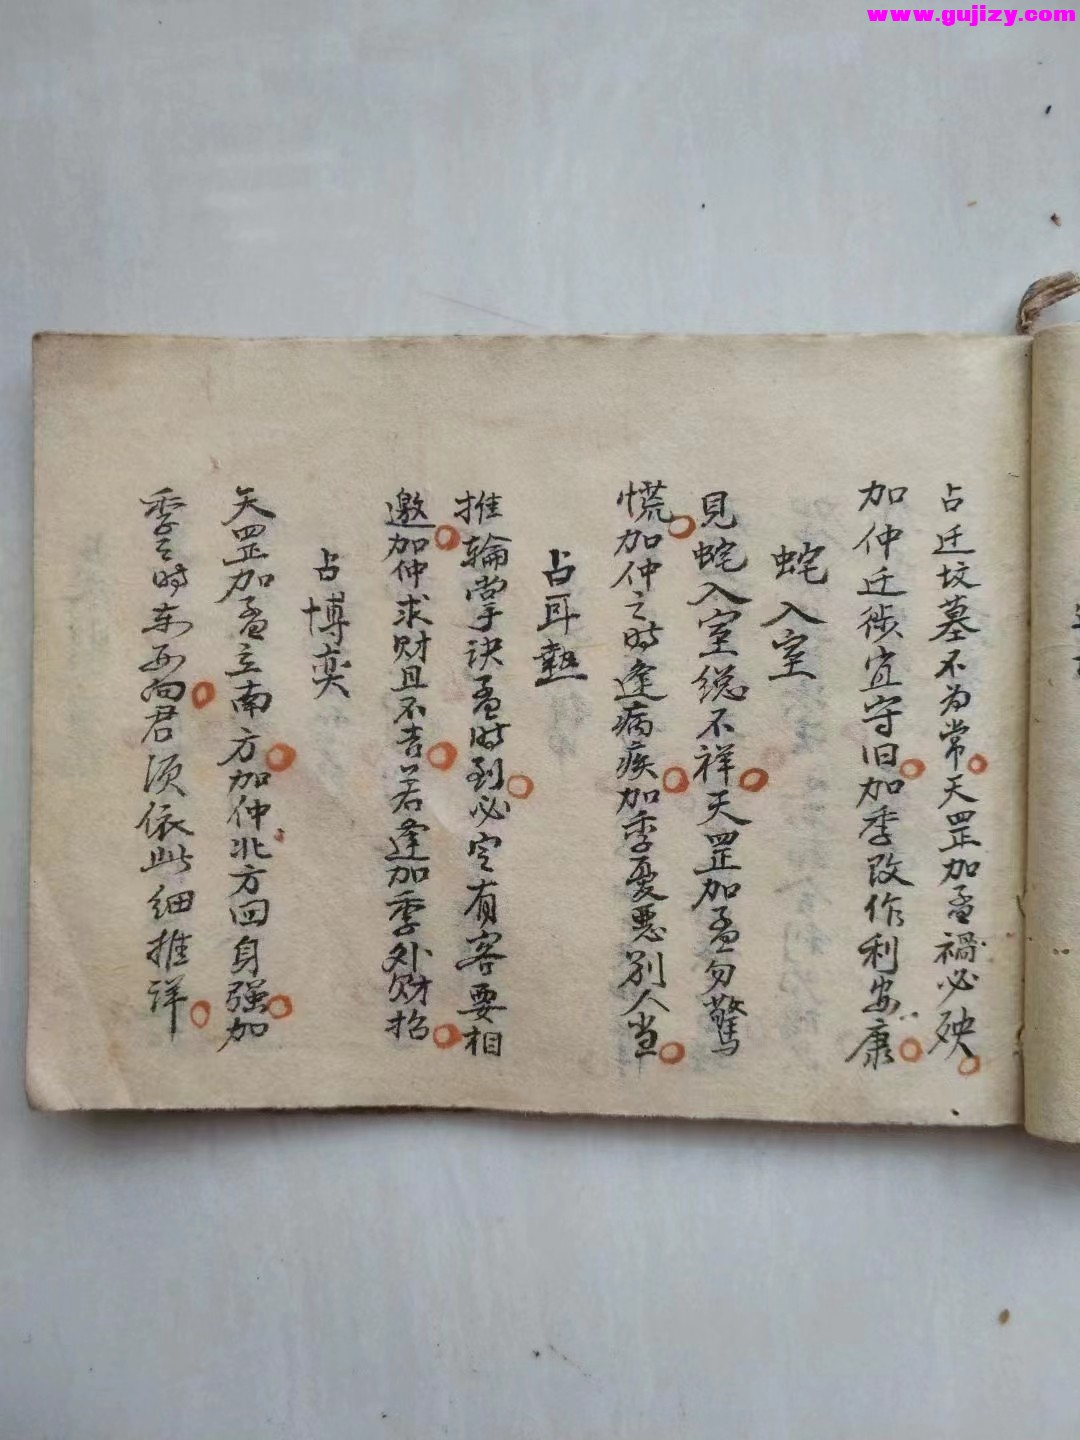 www.gujizy.com
占迁坟墓不为常天罡加孟禍必殃
加仲迁徙宜守旧加季改作利安康
蛇入室
見蛇入室總不祥天罡加孟勿驚
慌加仲之時逢病疾加季憂惡别人当
占耳熱
推輪掌诀孟时到必定有客要相
邀加仲求财且不吉若逢加季外财招
占博奕
天罡加孟立南方加仲北方回身强加
季之時东西向君须依此细推详